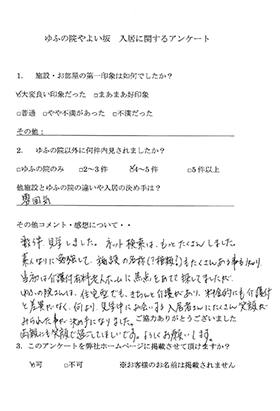 ゆふの院やよい坂　入居に関するアンケート
1. 施設・お部屋の第一印象は如何でしたか？
☑大変良い印象だった　□まあまあ好印象
□普通　□やや不満があった　□不満だった
その他：
2. ゆふの院以外に何件内見されましたか？
□ゆふの院のみ　□2～3件　☑4～5件　□5件以上
他施設とゆふの院の違いや入居の決め手は？
雰囲気
その他コメント・感想について・・
数件、見学しました。ネット検索は、もっとたくさんしました。
素人なりに勉強して、施設の名称(種類)もたくさんある事を知り、
当初は介護付有料老人ホームに焦点をあてて探してましたが、
ゆふの院さんは、住宅型でも、きちんと介護があり、料金的にも介護付
と差異がなく、何より、見学時にお会いする入居者さんにたくさん笑顔が
みられた事が決め手になりました。ご協力ありがとうございました
両親にも笑顔で過ごしてほしいです。よろしくお願いします。
3. このアンケートを弊社ホームページに掲載させて頂けますか？
☑可　□不可　※お客様のお名前は掲載されません